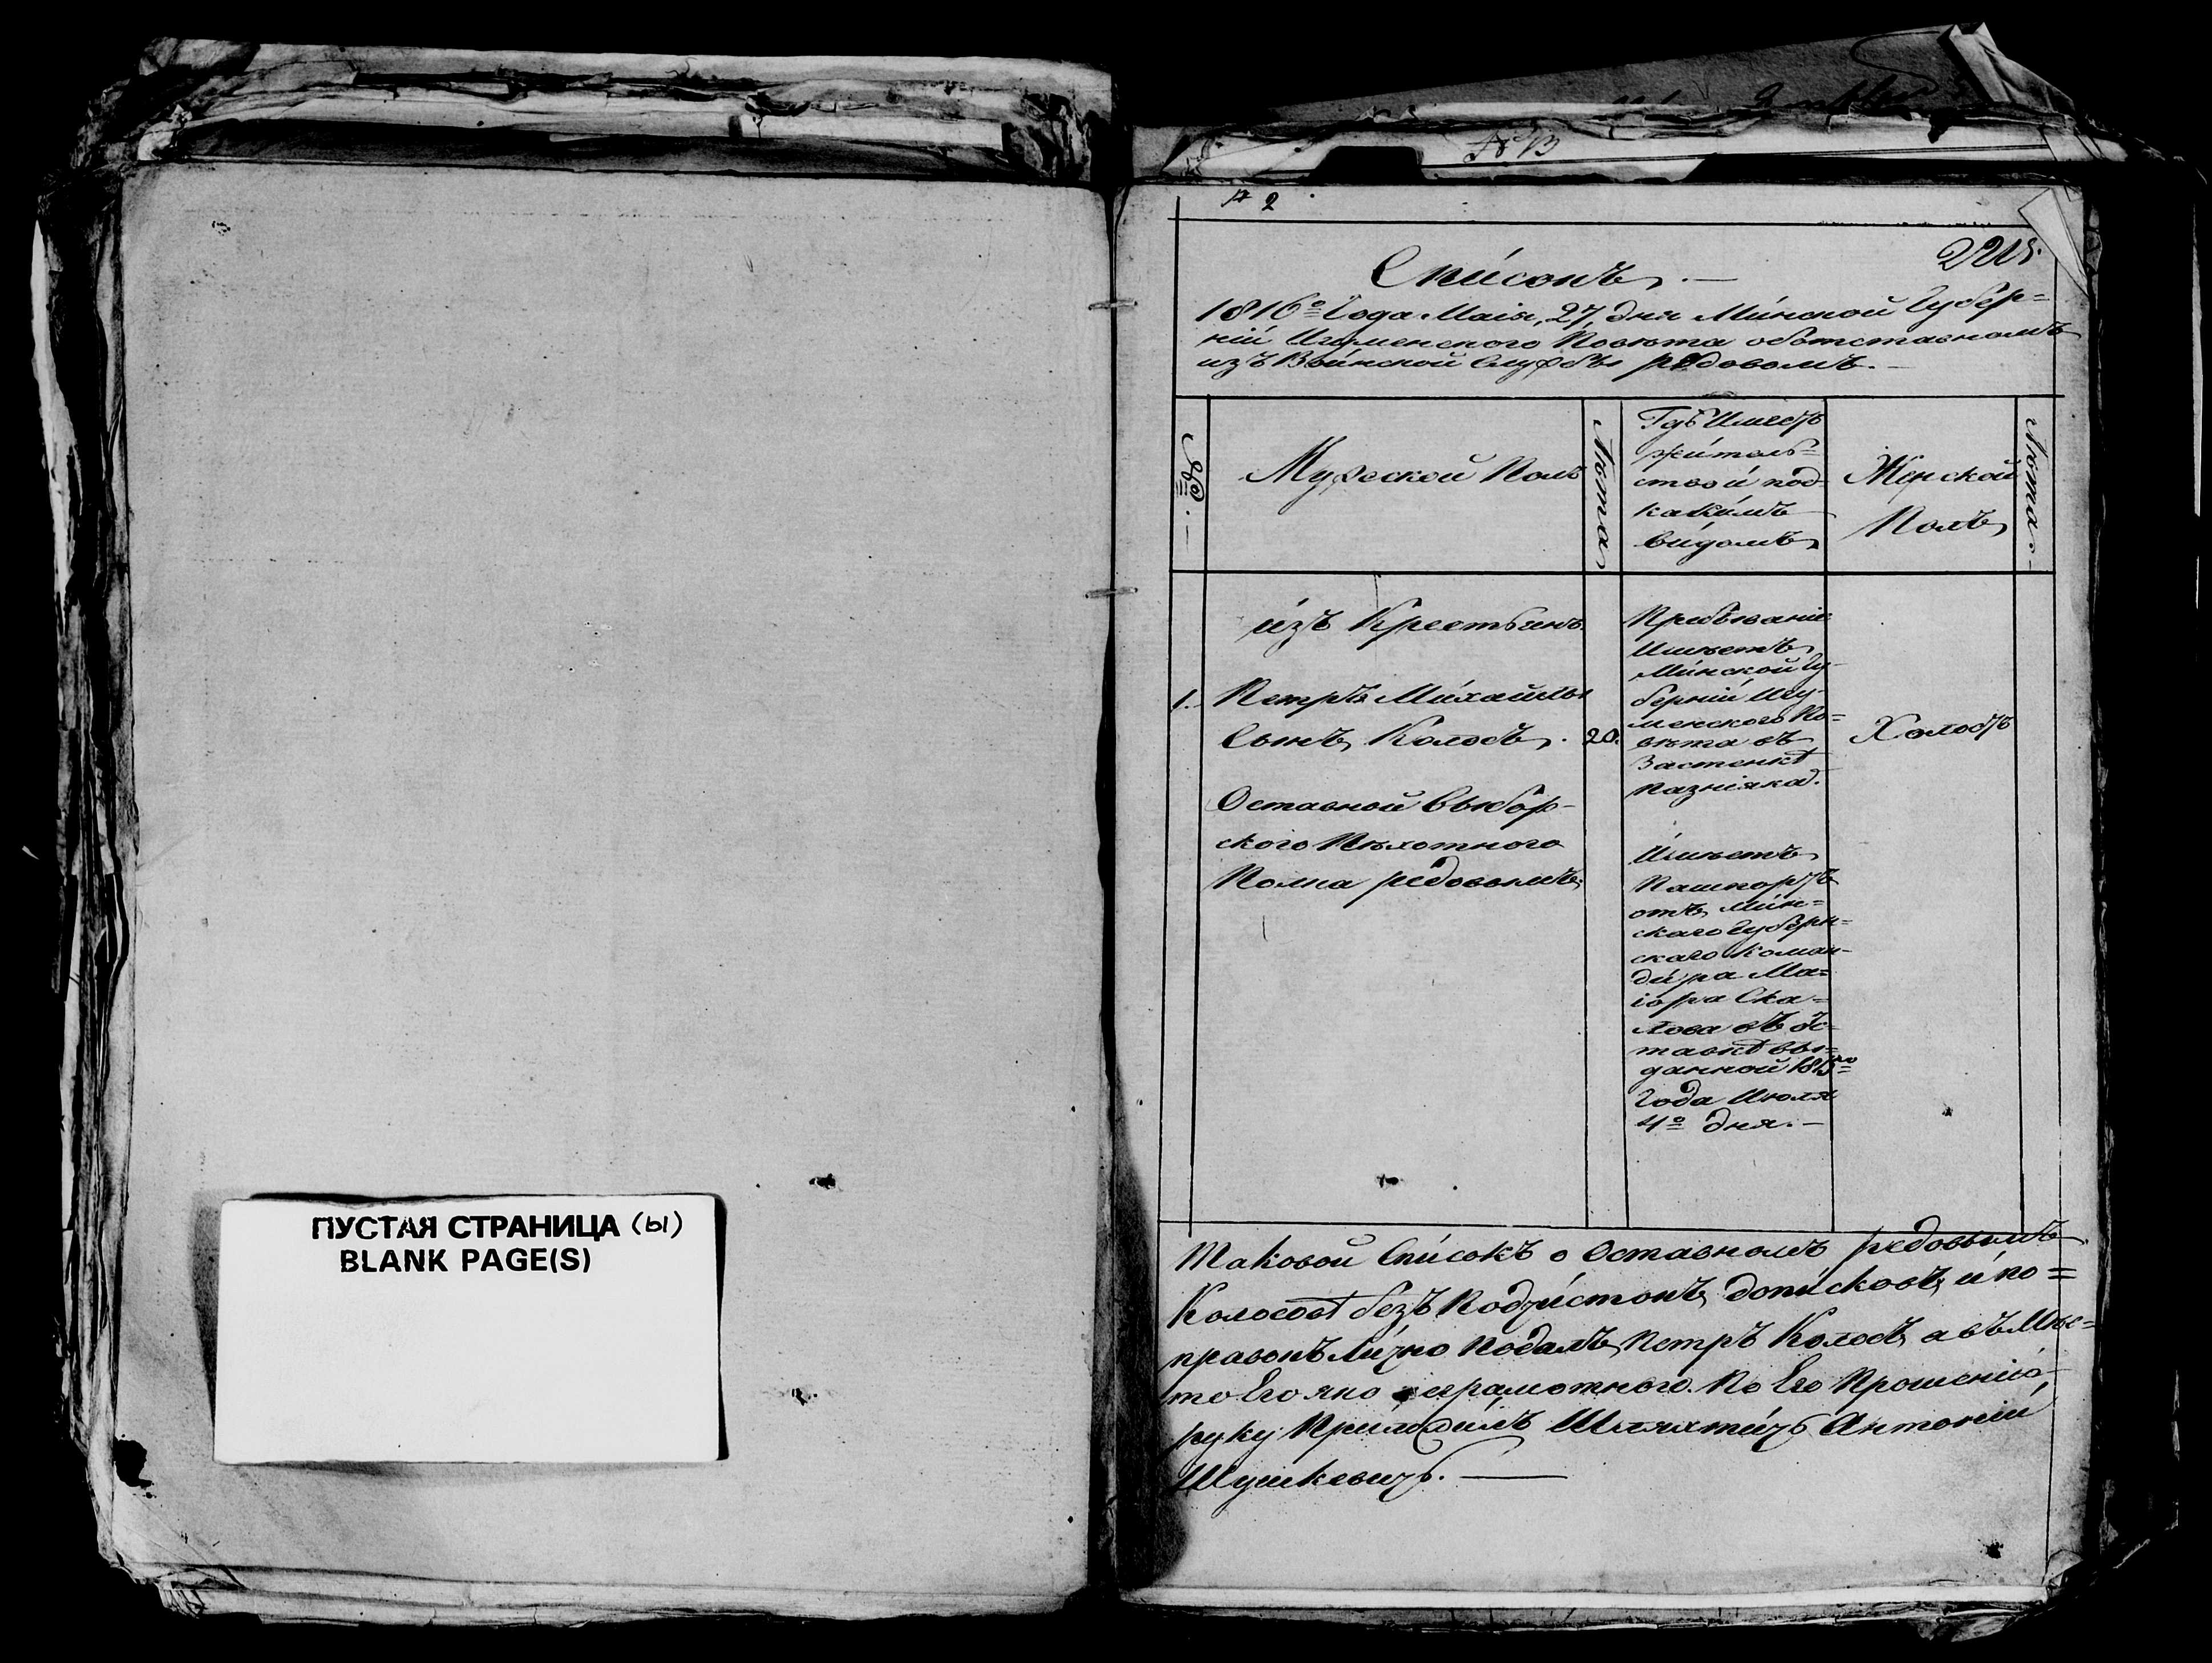 ПУСТАЯ СТРАНИЦА (ы)
BLANK PAGE(S)
№ 2
Списокъ. —
1816го Года Маія, 27 дня Минской Губер=
ніи Игуменского Повѣта оботставномъ
изъ Воинской Службы редовомъ. —
Мужеской Полъ
Лѣта
Гдѣ Имеетъ
житель=
ство и под
какимъ
видомъ
Женской
Полъ
Лѣта. —
изъ Крестьянъ
1. Петръ Михайлы
Сынъ Колосъ. 20.
Оставной Выбор-
ского Пѣхотного
Полка редовымъ
Пребываніе
Имѣетъ
Минской Гу-
берніи Игу-
менского По=
вѣта въ
Застенкѣ
Позніяка.
Имѣетъ
Пашпортъ
отъ Мин=
скаго Губерн=
скаго Коман-
дира Ма=
іора Ска=
лова въ от-
тавкѣ вы=
данной 1815го
Года Июля
4го дня. —
Холостъ
Таковой Списокъ о Оставномъ редовымъ
Колосоѣ безъ Подчистокъ, дописковъ, и по=
правокъ Лично Подалъ Петръ Колосъ, а въ Мѣс=
то Его яко неграмотного. По Его Прошенію
руку Приложилъ Шляхтичъ Антоній
Шушкевичъ. —